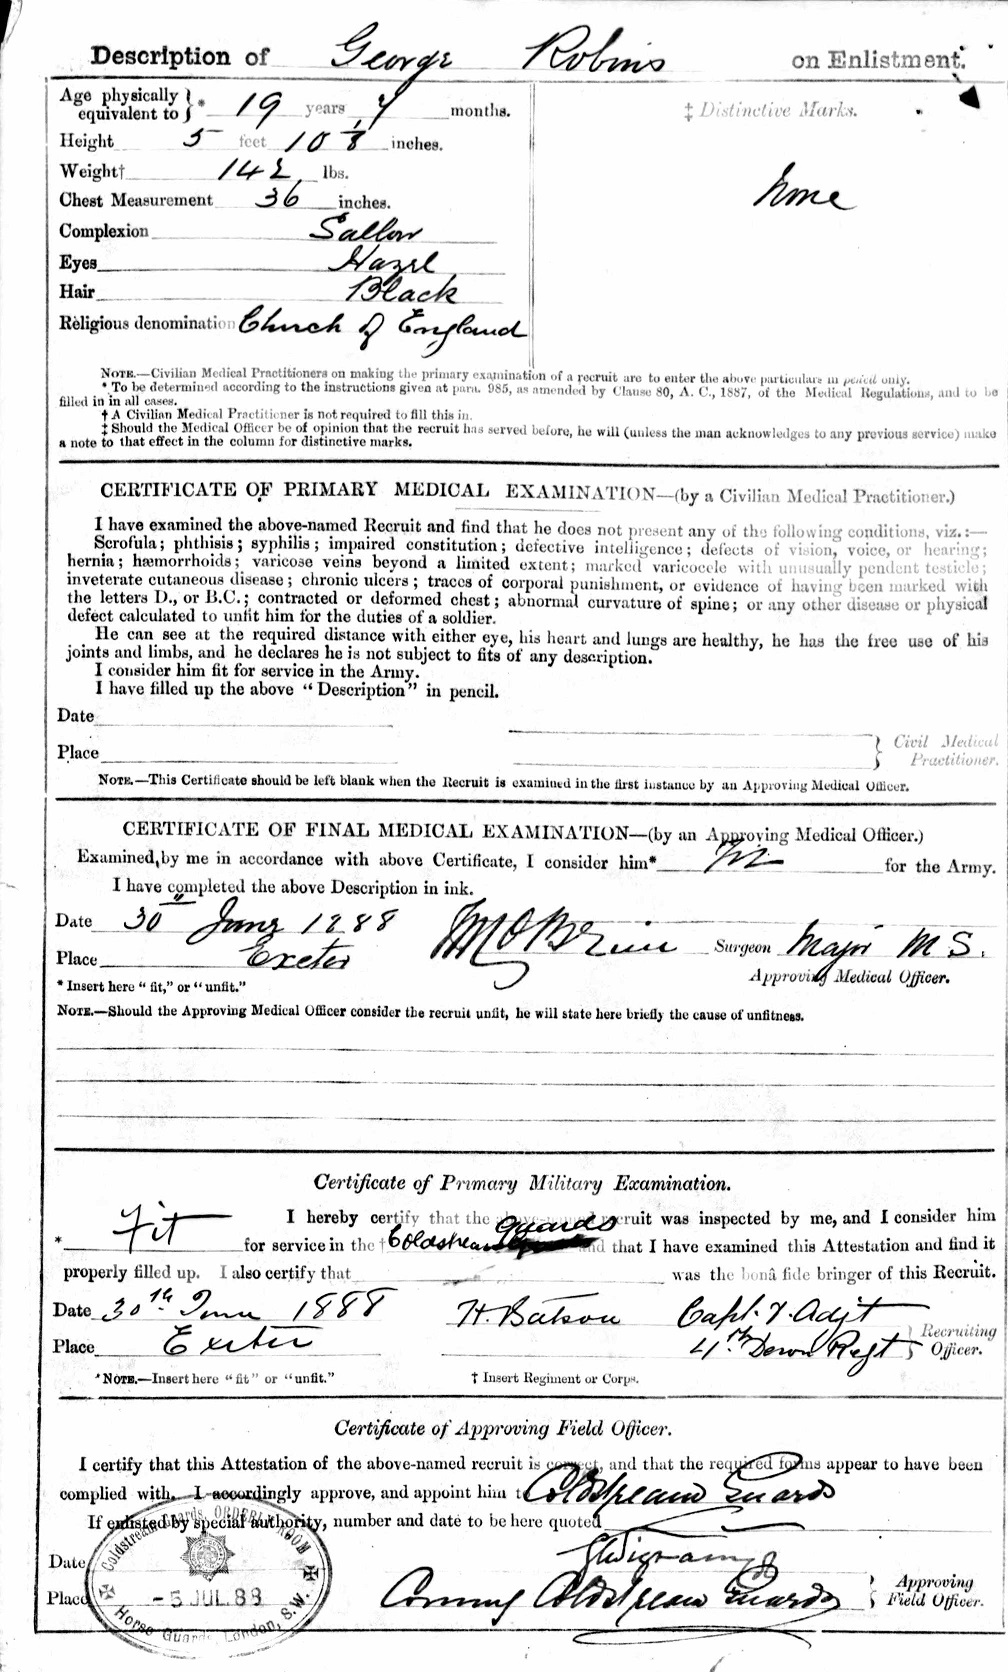 Description of George Robins on Enlistment.
Age physically equivalent to }* 19 years 7 months.
‡ Distinctive Marks.
Height 5 feet 10 ⅞ inches.
Weight† 142 lbs.
None
Chest Measurement 36 inches.
Complexion Sallow
Eyes Hazel
Hair Black
Religious denomination Church of England
NOTE.—Civilian Medical Practitioners on making the primary examination of a recruit are to enter the above particulars in pencil only.
* To be determined according to the instructions given at para. 985, as amended by Clause 80, A. C., 1887, of the Medical Regulations, and to be
filled in in all cases.
† A Civilian Medical Practitioner is not required to fill this in.
‡ Should the Medical Officer be of opinion that the recruit has served before, he will (unless the man acknowledges to any previous service) make
a note to that effect in the column for distinctive marks.
CERTIFICATE OF PRIMARY MEDICAL EXAMINATION—(by a Civilian Medical Practitioner.)
I have examined the above-named Recruit and find that he does not present any of the following conditions, viz.:—
Scrofula; phthisis; syphilis; impaired constitution; defective intelligence; defects of vision, voice, or hearing;
hernia; hæmorrhoids; varicose veins beyond a limited extent; marked varicocele with unusually pendent testicle;
inveterate cutaneous disease; chronic ulcers; traces of corporal punishment, or evidence of having been marked with
the letters D., or B.C.; contracted or deformed chest; abnormal curvature of spine; or any other disease or physical
defect calculated to unfit him for the duties of a soldier.
He can see at the required distance with either eye, his heart and lungs are healthy, he has the free use of his
joints and limbs, and he declares he is not subject to fits of any description.
I consider him fit for service in the Army.
I have filled up the above "Description" in pencil.
Date
Place
Civil Medical
Practitioner.
NOTE.—This Certificate should be left blank when the Recruit is examined in the first instance by an Approving Medical Officer.
CERTIFICATE OF FINAL MEDICAL EXAMINATION—(by an Approving Medical Officer.)
Examined by me in accordance with above Certificate, I consider him* Fit for the Army.
I have completed the above Description in ink.
Date 30th June 1888
Place Exeter
M O'Brien Surgeon Major M S.
Approving Medical Officer.
* Insert here "fit," or "unfit."
NOTE.—Should the Approving Medical Officer consider the recruit unfit, he will state here briefly the cause of unfitness.
Certificate of Primary Military Examination.
I hereby certify that the above-named recruit was inspected by me, and I consider him
* Fit for service in the † Coldstream Guards and that I have examined this Attestation and find it
properly filled up. I also certify that was the bonâ fide bringer of this Recruit.
Date 30th June 1888 H. Batson Capt. & Adjt
Place Exeter 4th Devon Regt } Recruiting Officer.
*NOTE.—Insert here "fit" or "unfit."
† Insert Regiment or Corps.
Certificate of Approving Field Officer.
I certify that this Attestation of the above-named recruit is correct, and that the required forms appear to have been
complied with. I accordingly approve, and appoint him to Coldstream Guards
If enlisted by special authority, number and date to be here quoted
Date
Place
Coldstream Guards, ORDERLY ROOM
- 5 JUL 88
Horse Guards, London, S.W.
Commg Coldstream Guards
Approving
Field Officer.